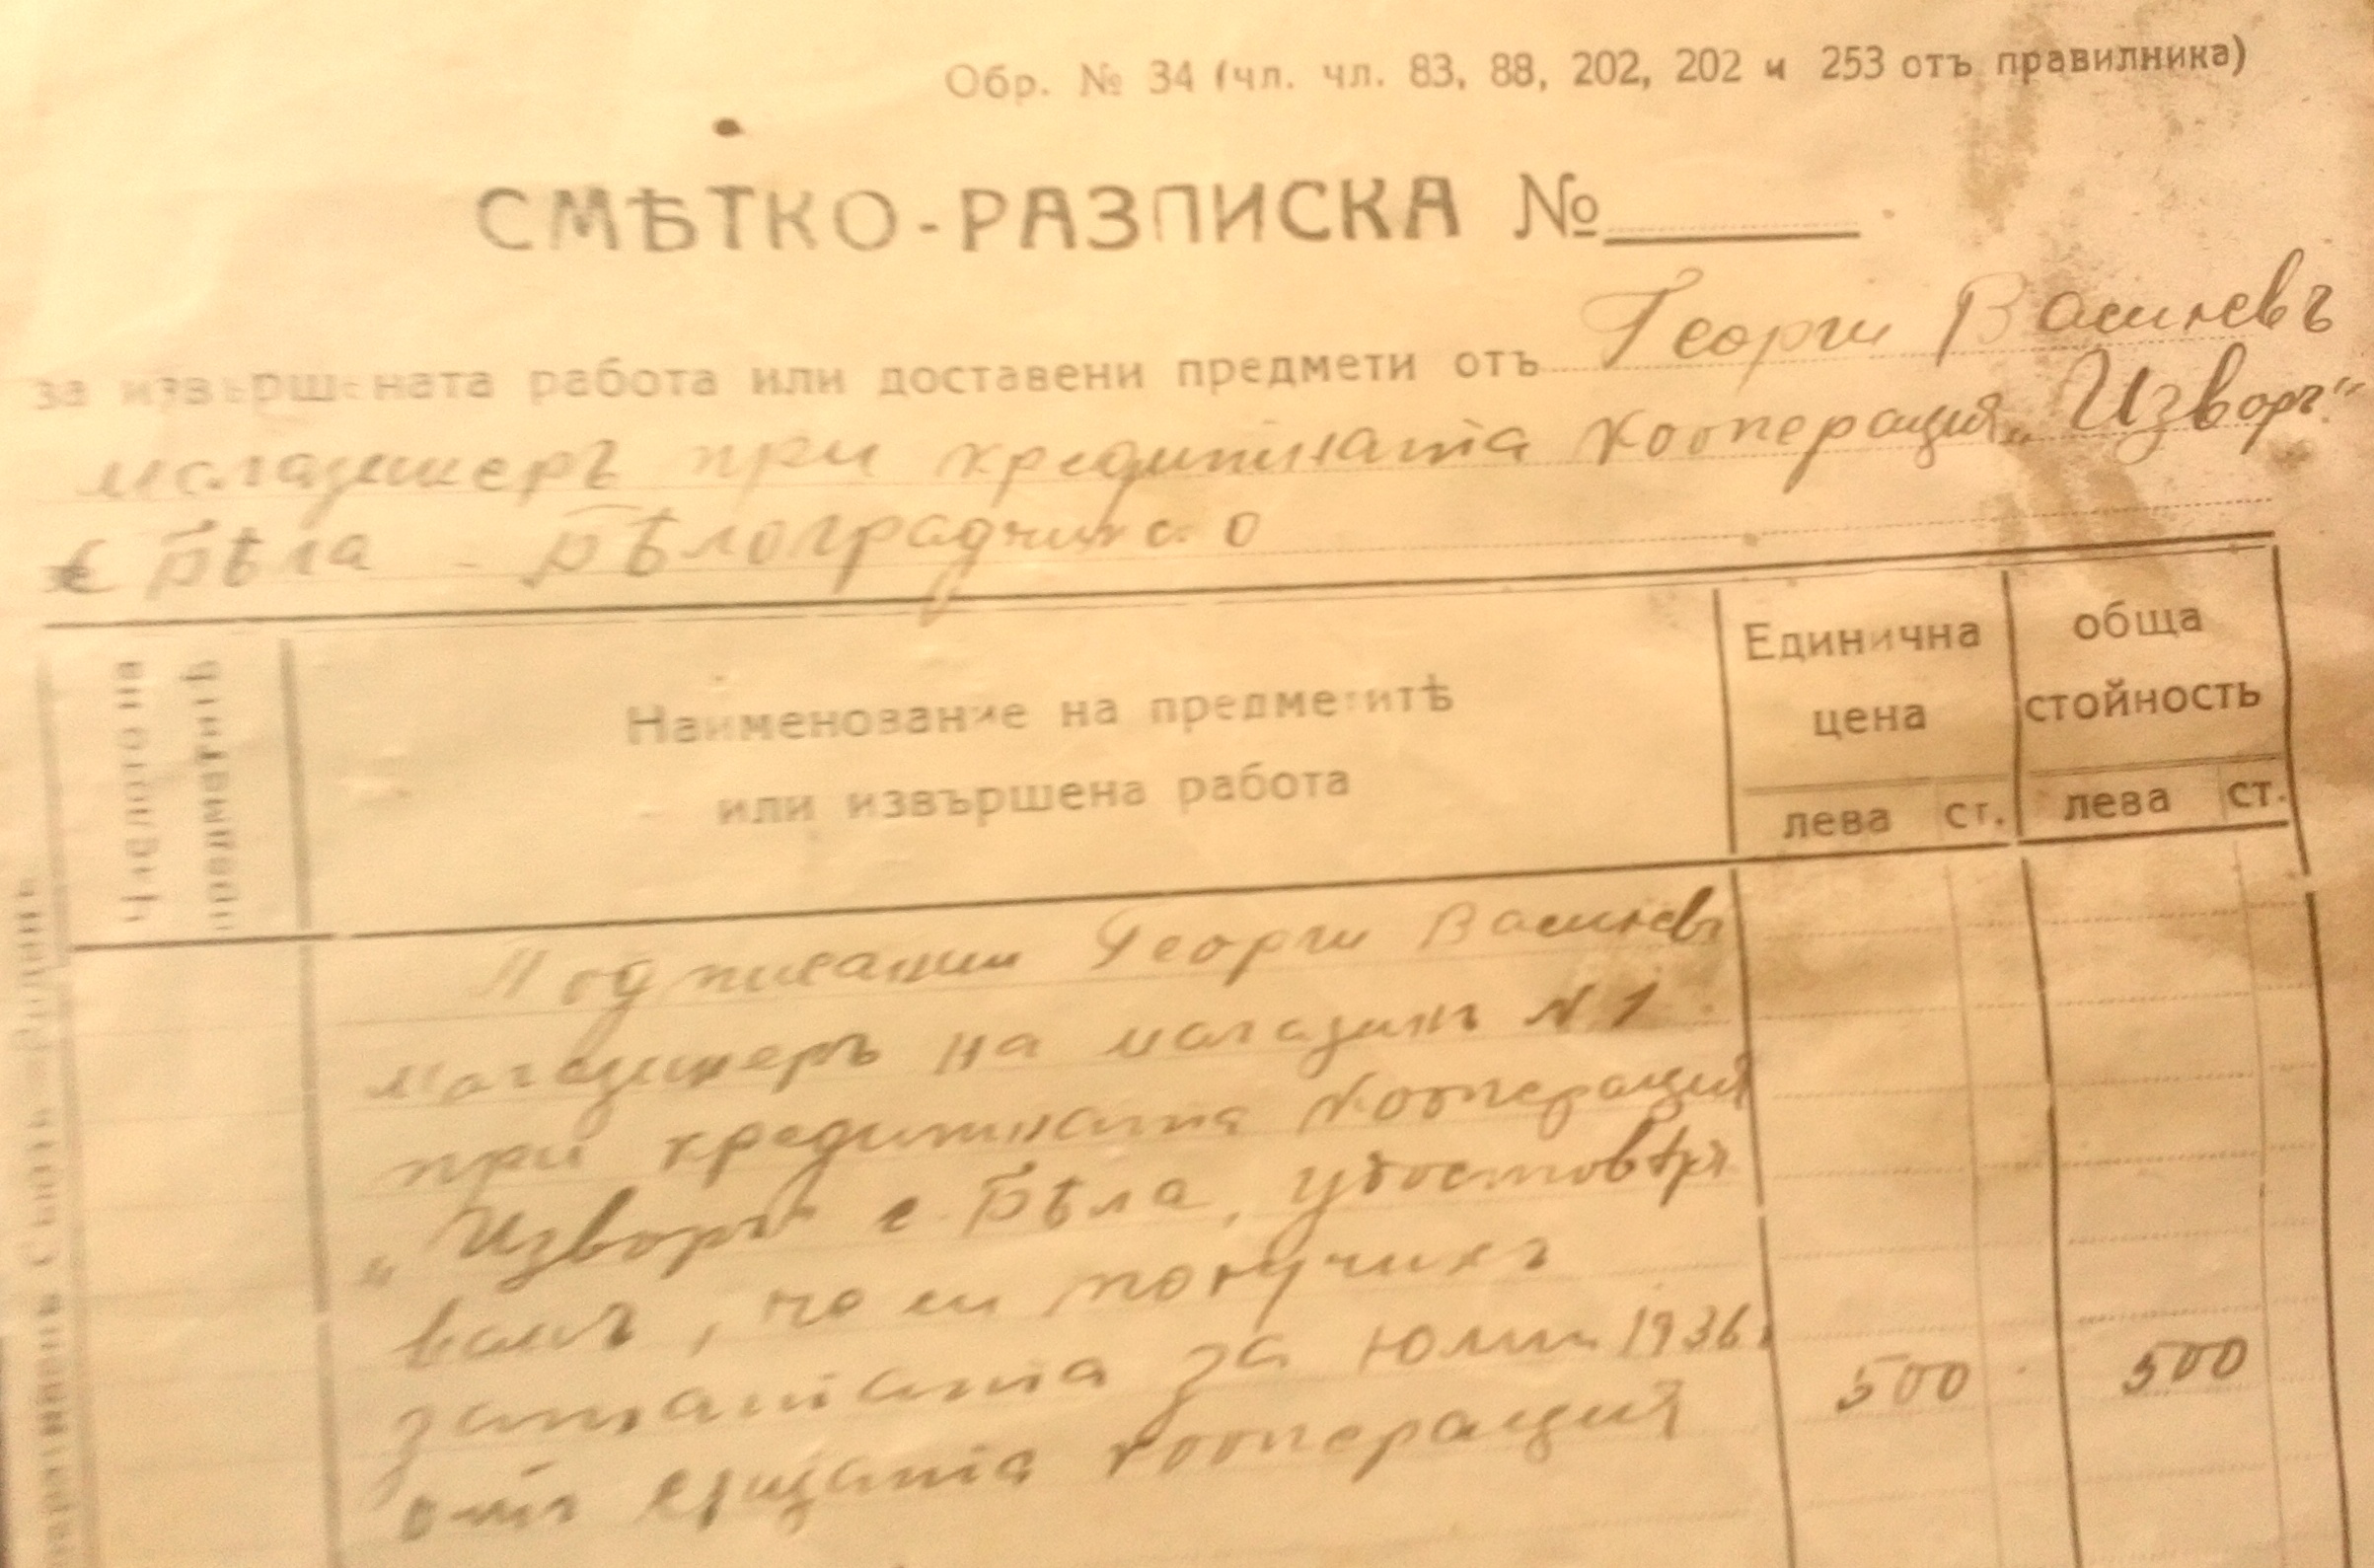 Обр. № 34 (чл. чл. 83, 88, 202, 202 и 253 отъ правилника)
СМѢТКО-РАЗПИСКА №
за извършената работа или доставени предмети отъ Георги Василевъ
магазинеръ при кредитната кооперация „Изворъ“
с Бѣла - Бѣлоградчишко
Количество на
предметитѣ
Наименование на предметитѣ
или извършена работа
Единична
цена
лева ст.
обща
стойность
лева ст.
Подписании Георги Василевъ
магазинеръ на магазинъ N 1
при кредитната кооперация
„Изворъ“ с. Бѣла, удостовѣря
вамъ, че си получихъ
заплатата за юлии 1936. 500 500
отъ сѫщата кооперация